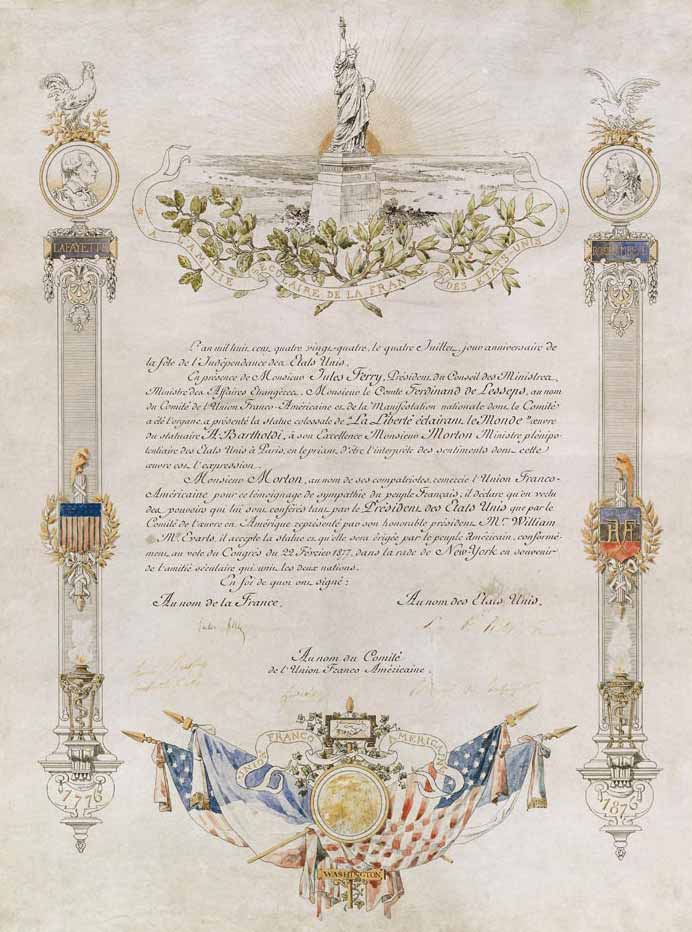 L'AMITIÉ SÉCULAIRE DE LA FRANCE ET DES ETATS-UNIS
LAFAYETTE
L'an mil huit cent quatre vingt-quatre, le quatre Juillet, jour anniversaire de
la fête de l'Indépendance des Etats Unis.
En présence de Monsieur Jules Ferry, Président du Conseil des Ministres,
Ministre des Affaires Etrangères. Monsieur le Comte Ferdinand de Lesseps, au nom
du Comité de l'Union Franco-Américaine et de la Manifestation nationale dont le Comité
a été l'organe, a présenté la statue colossale de "La Liberté éclairant le Monde" œuvre
du statuaire A. Bartholdi, à son Excellence Monsieur Morton Ministre plénipo-
tentiaire des Etats Unis à Paris, en le priant d'être l'interprète des sentiments dont cette
œuvre est l'expression.
Monsieur Morton, au nom de ses compatriotes, remercie l'Union Franco-
Américaine pour ce témoignage de sympathie du peuple Français; il déclare qu'en vertu
des pouvoirs qui lui sont conférés tant par le Président des Etats Unis que par le
Comité de l'œuvre en Amérique représenté par son honorable président Mr. William
M. Evarts, il accepte la statue et qu'elle sera érigée par le peuple Américain, conformé-
ment au vote du Congrès du 22 Février 1877, dans la rade de New York en souvenir
de l'amitié séculaire qui unit les deux nations.
En foi de quoi ont signé:
Au nom de la France. Au nom des Etats Unis.
Jules Ferry
Au nom du Comité
de l'Union Franco Américaine.
UNION FRANCO AMERICAINE
1776
1876
WASHINGTON